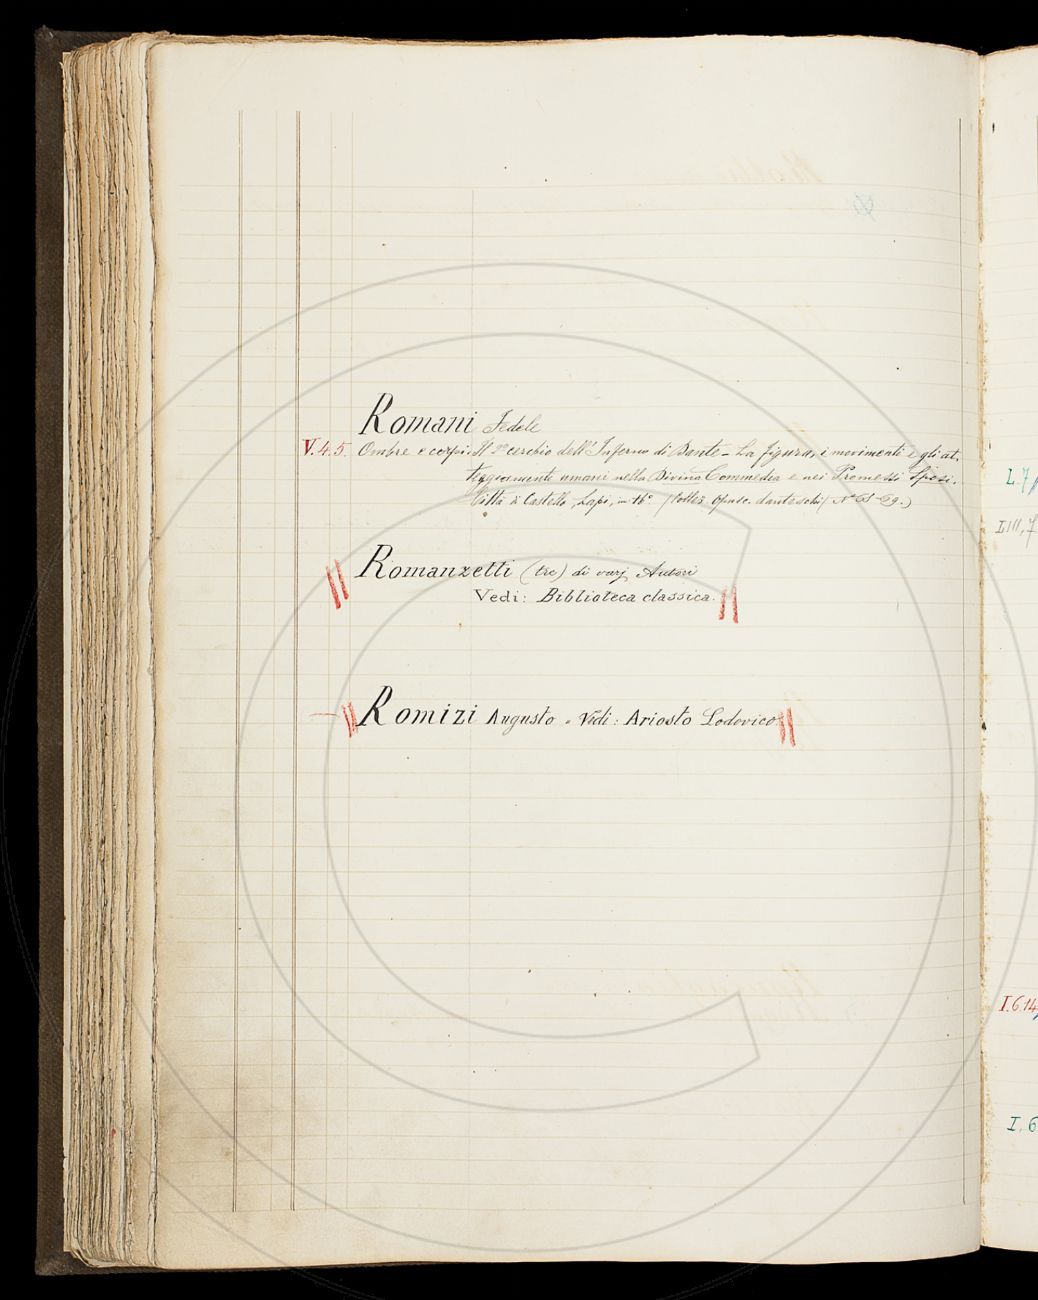 Romani Fedele
V. 4. 5. Ombre e corpi. Il 2º cerchio dell'Inferno di Dante - La figura, i movimenti e gli at-
teggiamenti umani nella Divina Commedia e nei Promessi Sposi.
Città di Castello, Lapi, in-16º (Collez. Opusc. danteschi) Nº 68-69.)
Romanzetti (tre) di varj Autori
Vedi: Biblioteca classica.
Romizi Augusto - Vedi: Ariosto Lodovico
L. 7
LIII, 7
I. 6. 14
I. 6